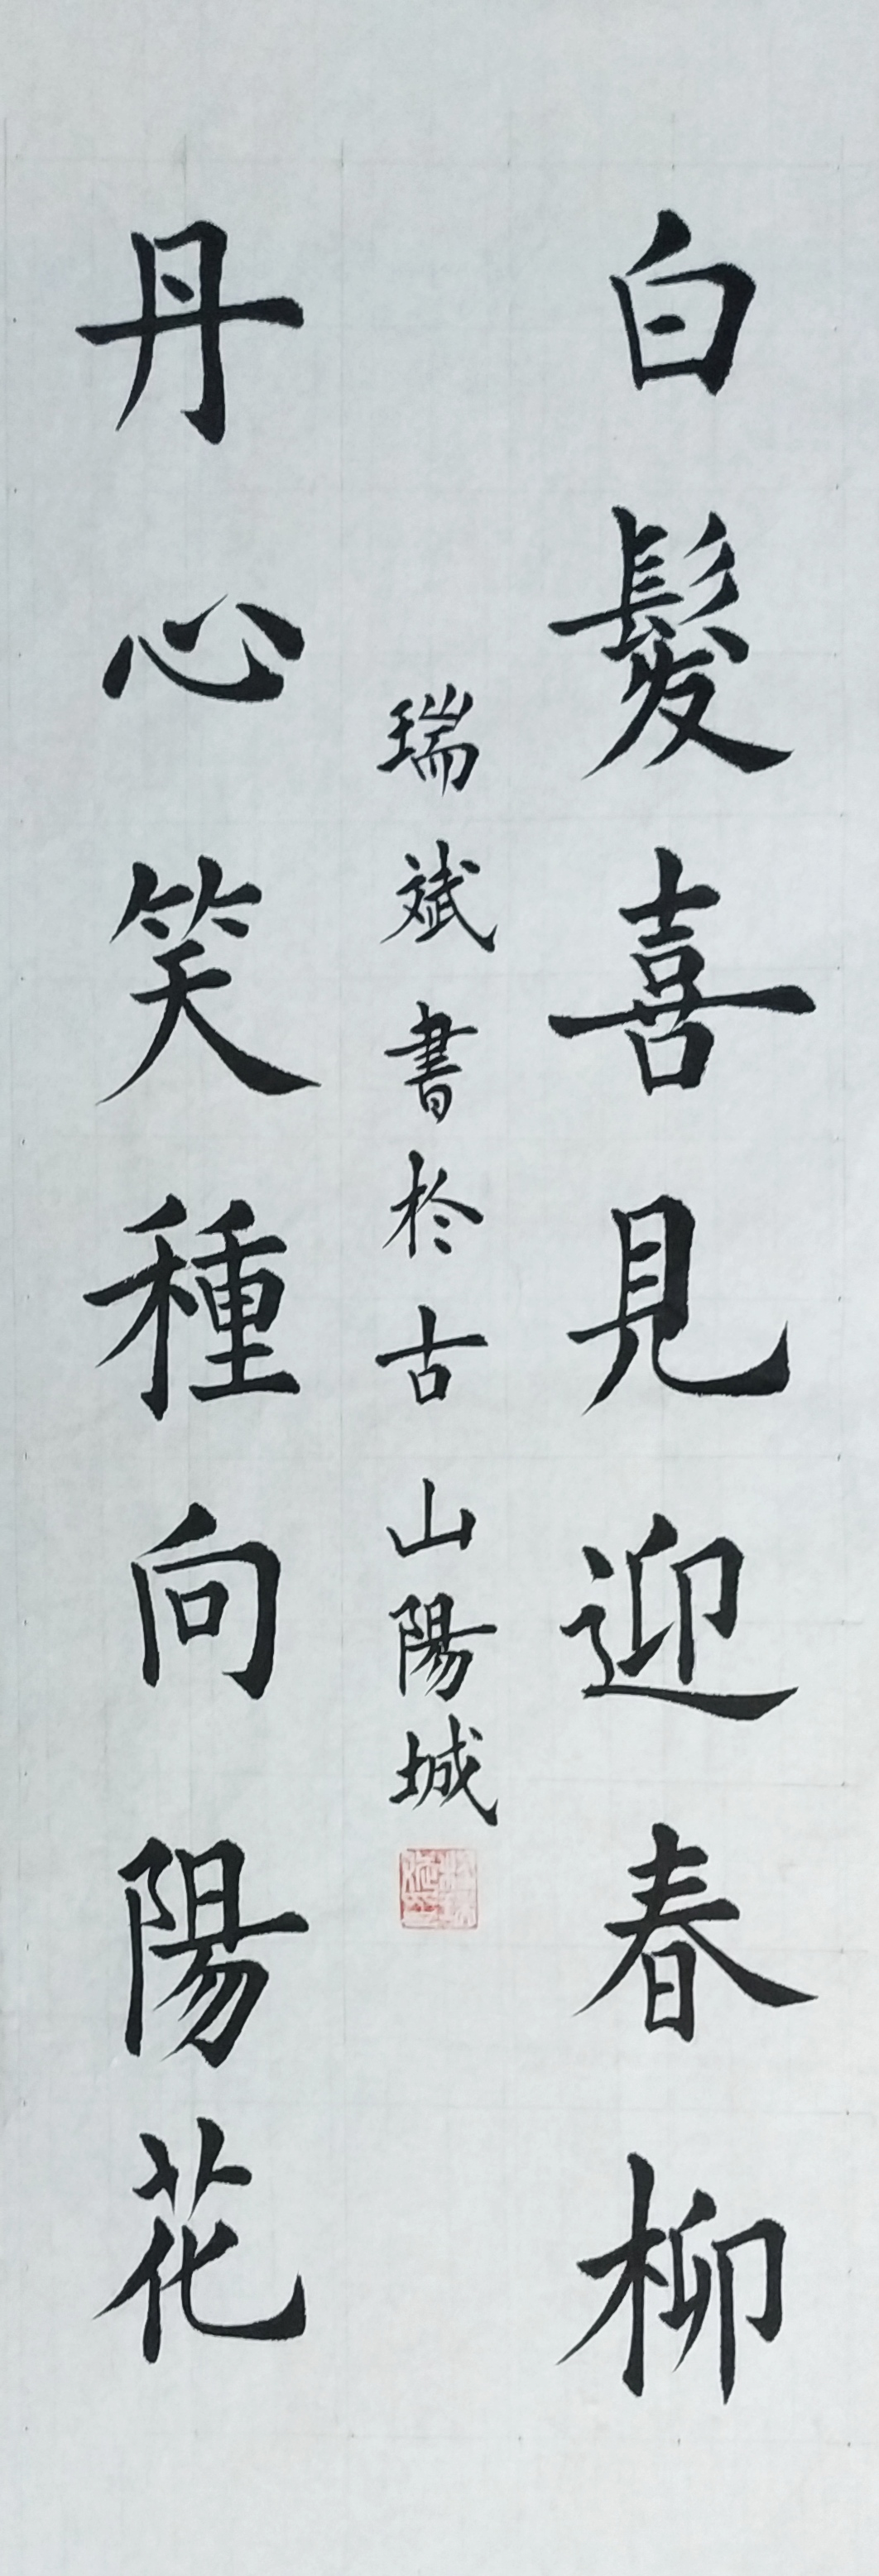 白髮喜見迎春柳
丹心笑種向陽花
瑞斌書於古山陽城